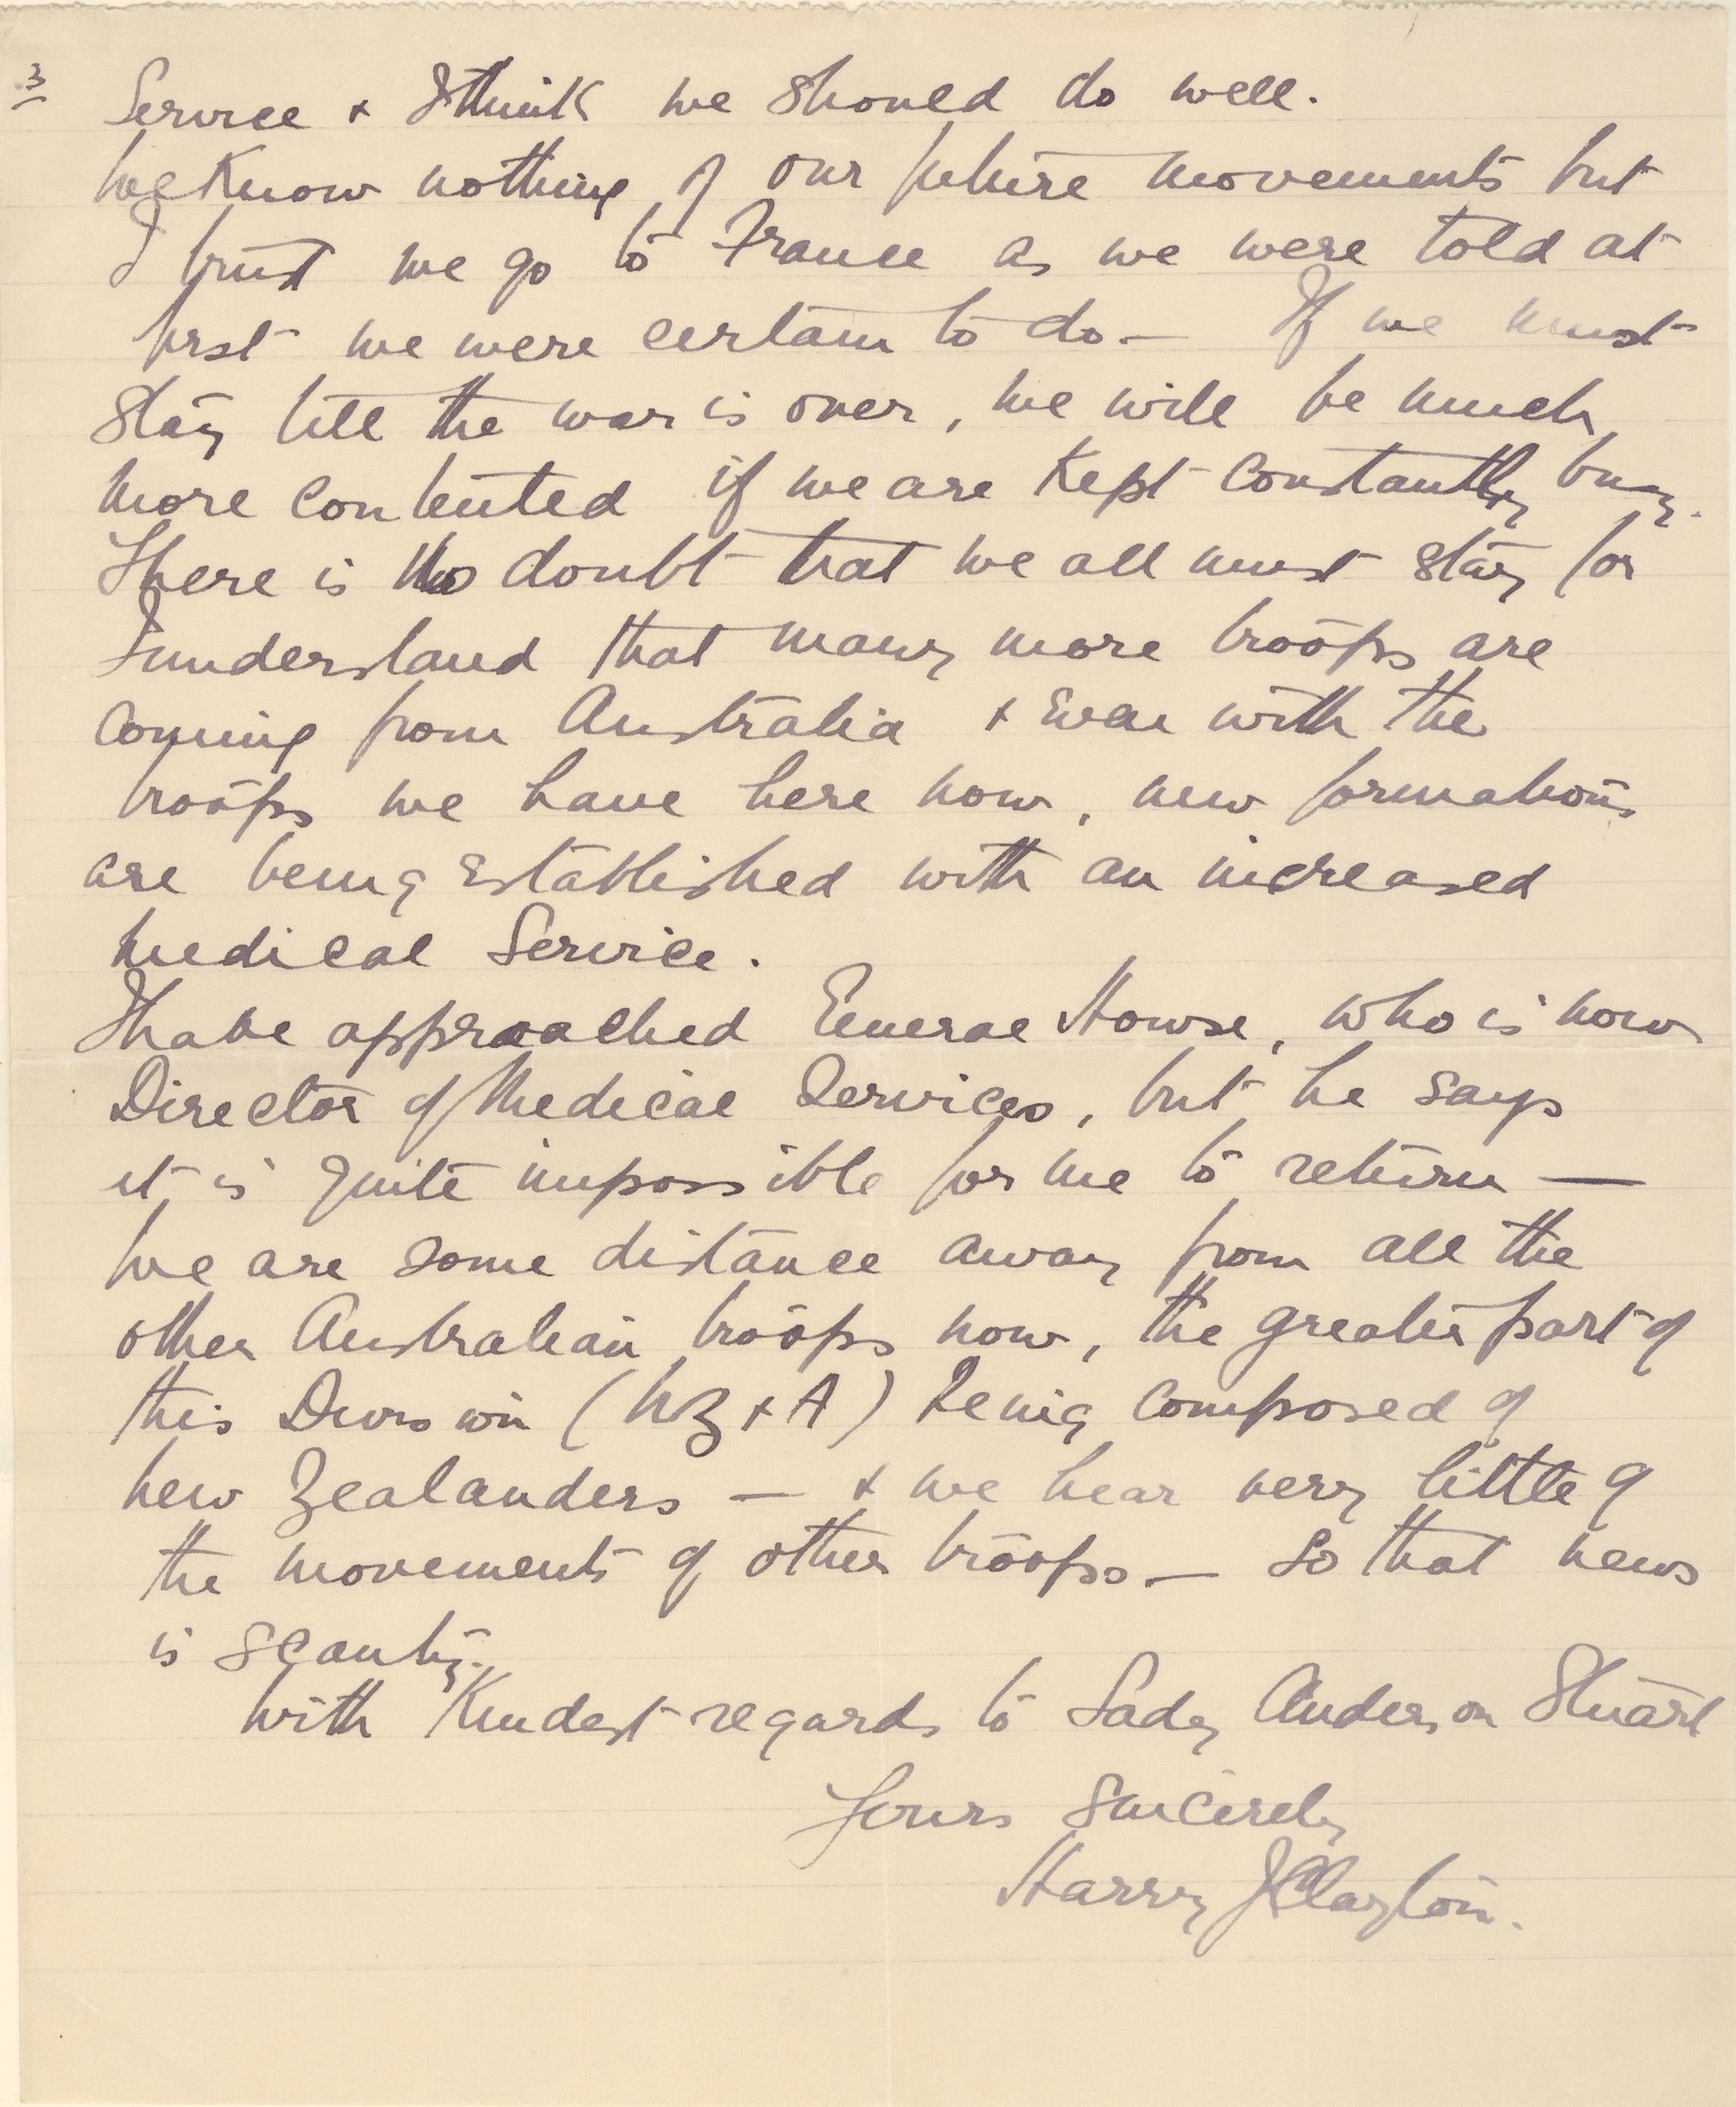 3
Service & I think we should do well.
We know nothing of our future movements but
I trust we go to France as we were told at
first we were certain to do — If we must
stay till the war is over, we will be much
more contented if we are kept constantly busy.
There is no doubt that we all must stay for
I understand that many more troops are
coming from Australia & even with the
troops we have here now, new formations
are being established with an increased
medical Service.
I have approached General Howse, who is now
Director of Medical Services, but he says
it is quite impossible for me to return —
We are some distance away from all the
other Australian troops now, the greater part of
this Division (NZ & A) being composed of
New Zealanders — & we hear very little of
the movements of other troops — so that news
is scanty.
With kindest regards to Lady Anderson Stuart
Yours Sincerely
Harry J Clayton.